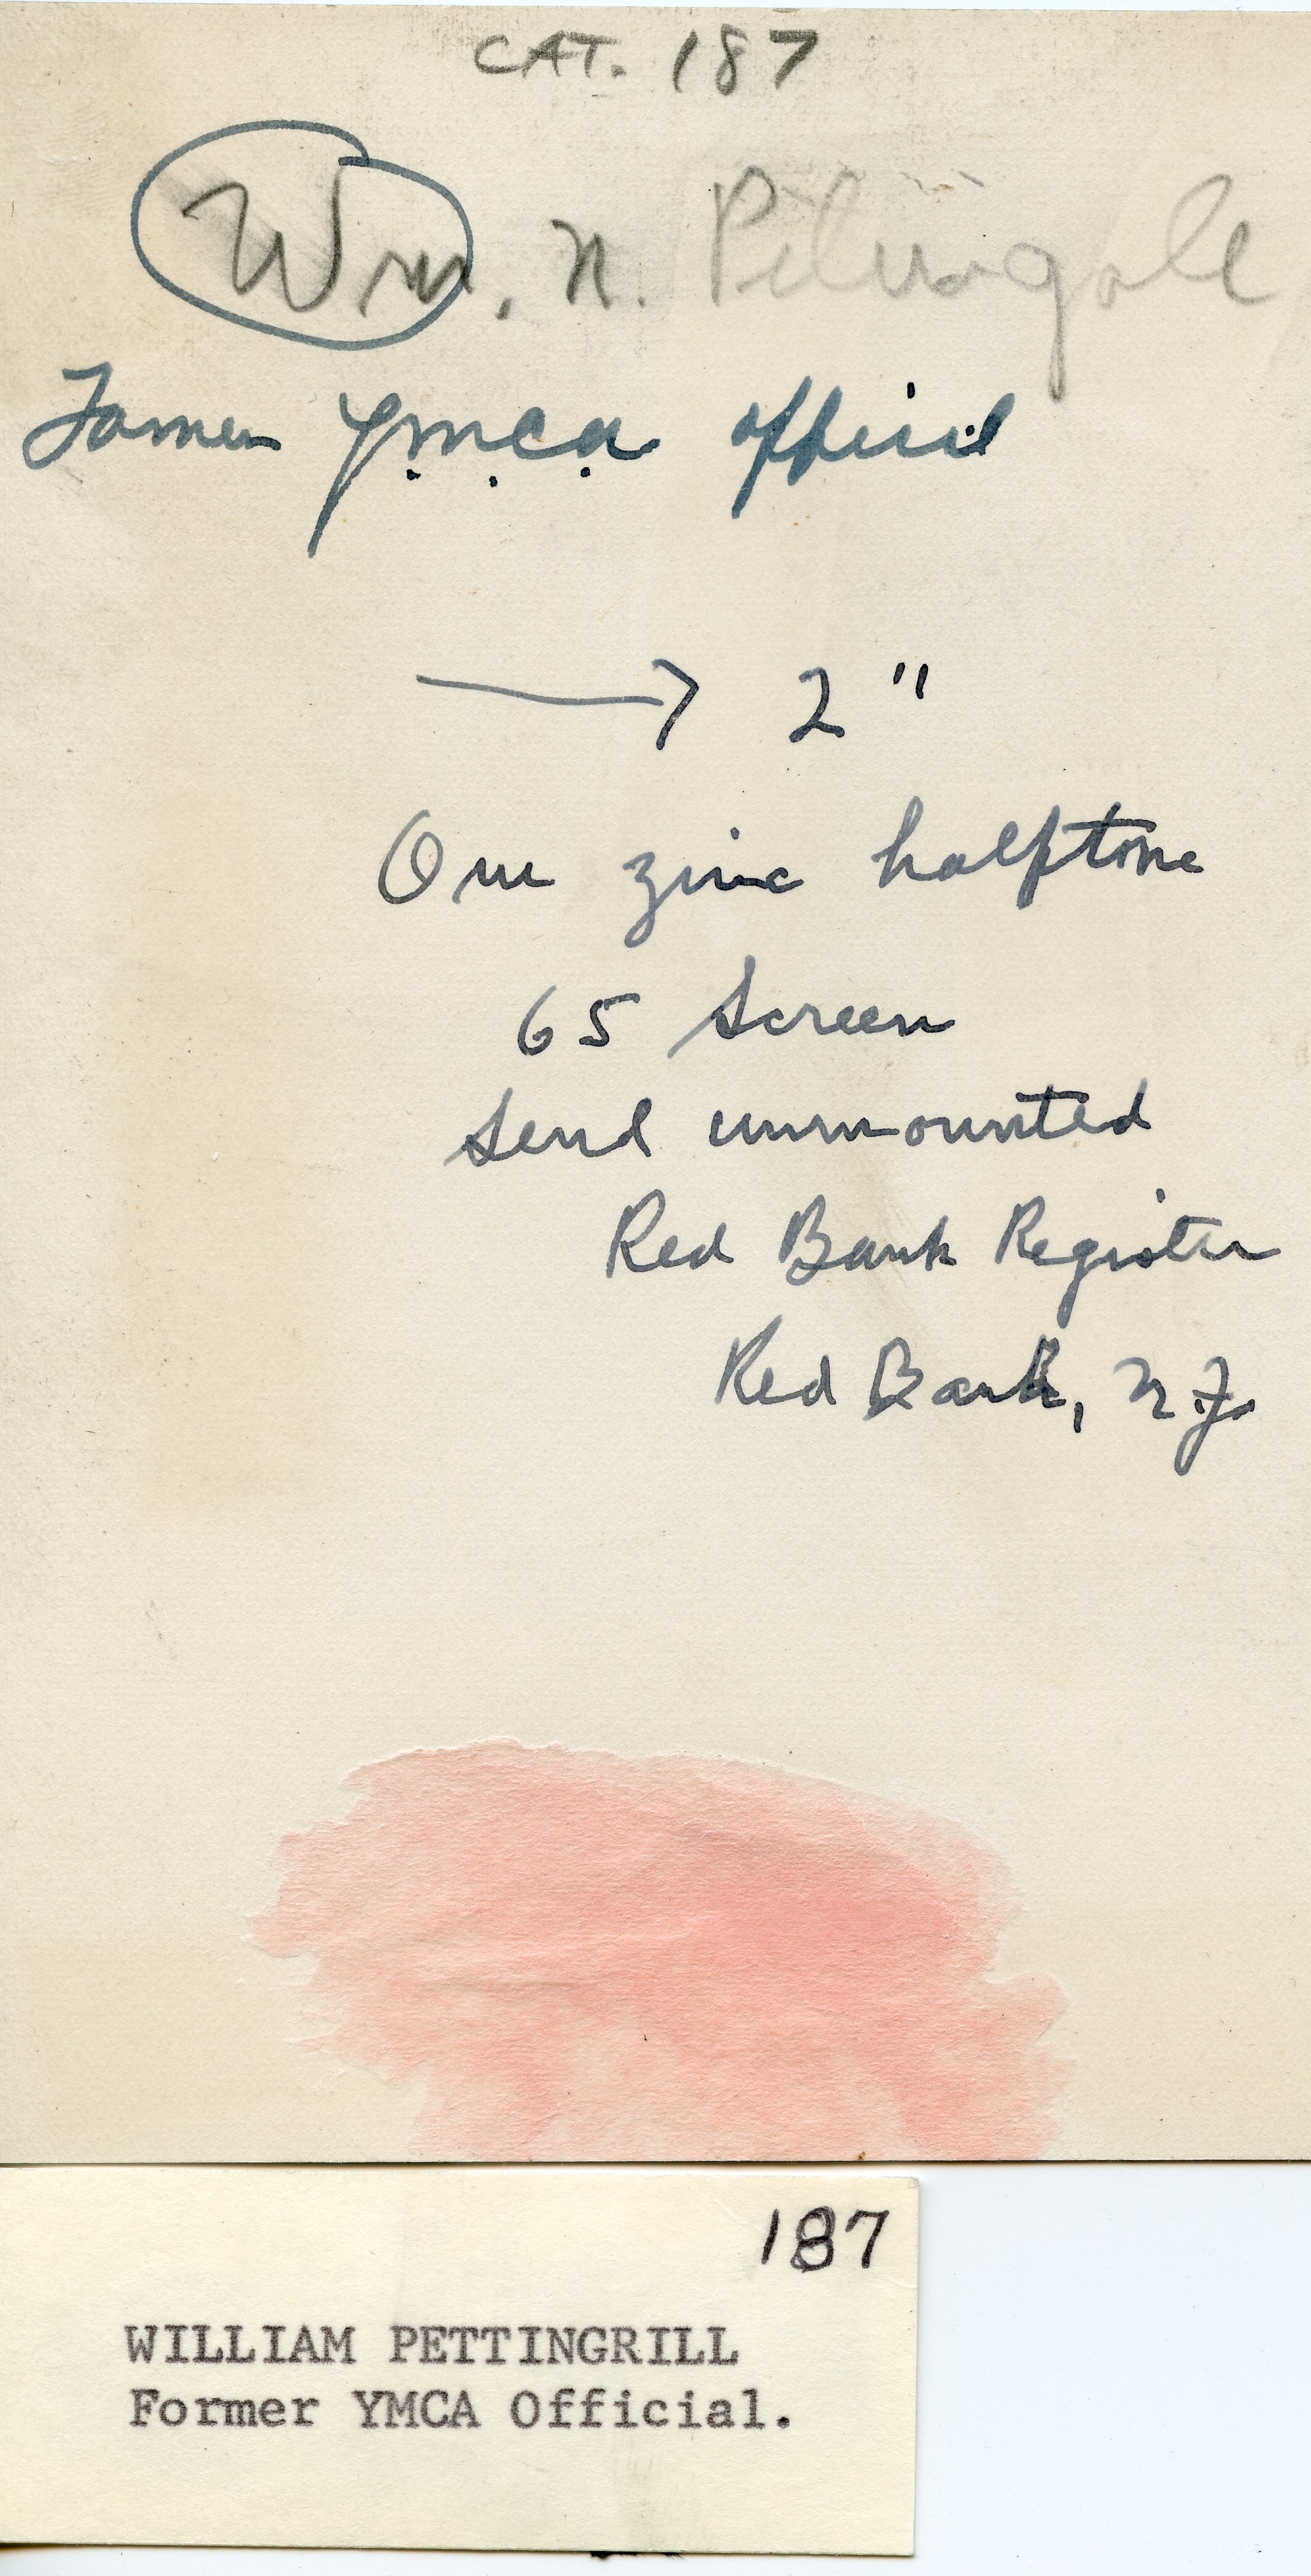 CAT. 187
Wm. N.
Former Y.M.C.A. official
2"
One zinc halftone
65 Screen
Send unmounted
Red Bank Register
Red Bank, N.J.
187
WILLIAM PETTINGRILL
Former YMCA Official.